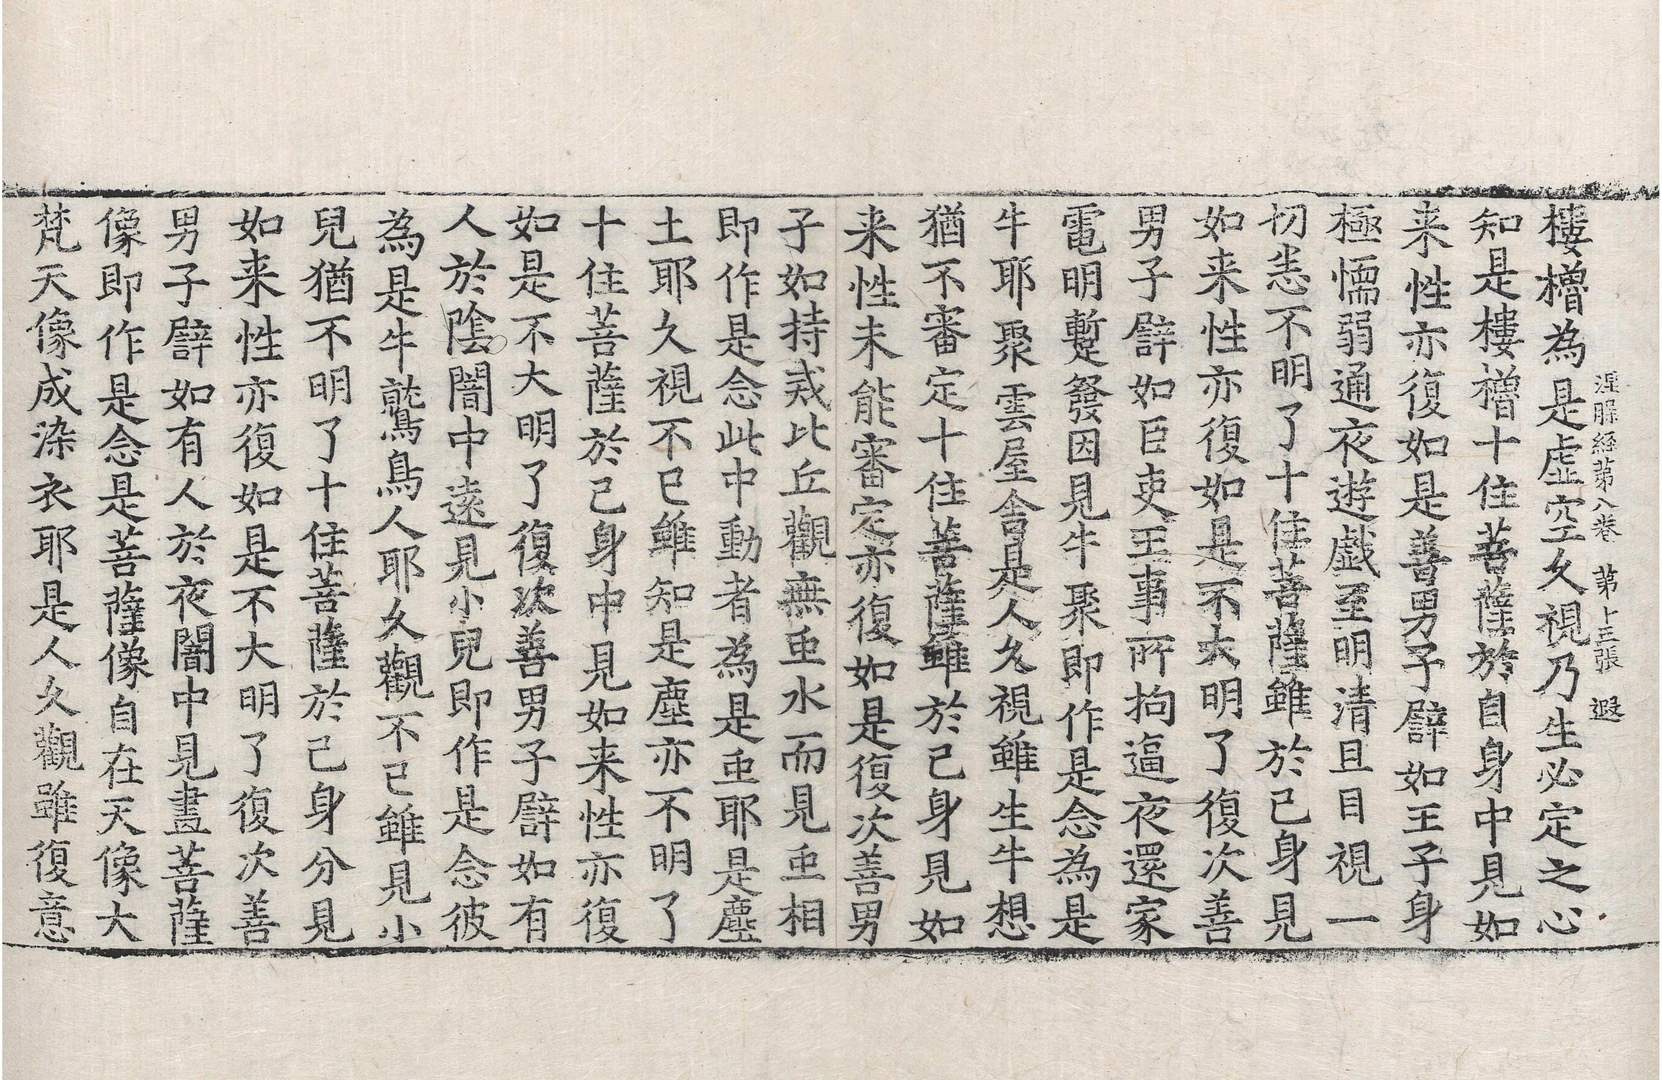 涅槃經第八卷　第十三張　遐
樓櫓為是虛空久視乃生必定之心
知是樓櫓十住菩薩於自身中見如
来性亦復如是善男子譬如王子身
極懦弱通夜遊戲至明清旦目視一
切悉不明了十住菩薩雖於己身見
如来性亦復如是不大明了復次善
男子譬如臣吏王事所拘逼夜還家
電明暫發因見牛聚即作是念為是
牛耶聚雲屋舍是人久視雖生牛想
猶不審定十住菩薩雖於己身見如
来性未能審定亦復如是復次善男
子如持戒比丘觀無䖝水而見䖝相
即作是念此中動者為是䖝耶是塵
土耶久視不已雖知是塵亦不明了
十住菩薩於己身中見如来性亦復
如是不大明了復次善男子譬如有
人於陰闇中遠見小兒即作是念彼
為是牛鷲鳥人耶久觀不已雖見小
兒猶不明了十住菩薩於己身分見
如来性亦復如是不大明了復次善
男子譬如有人於夜闇中見畫菩薩
像即作是念是菩薩像自在天像大
梵天像成染衣耶是人久觀雖復意